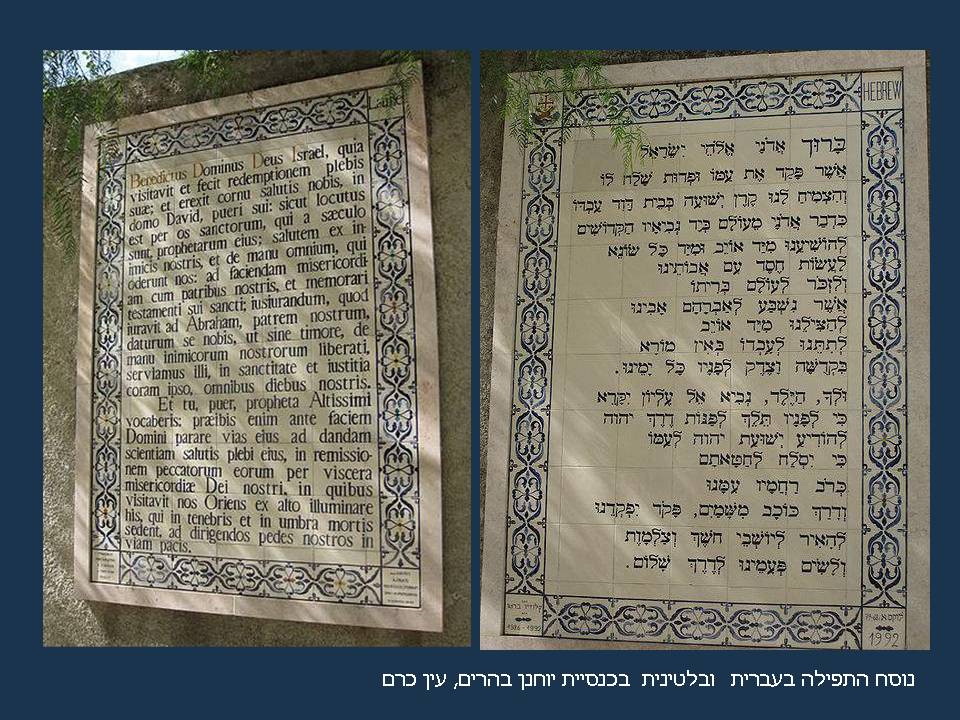 Latine
Benedictus Dominus Deus Israel, quia
visitavit et fecit redemptionem plebis
suæ; et erexit cornu salutis nobis, in
domo David, pueri sui: sicut locutus
est per os sanctorum, qui a sæculo
sunt, prophetarum eius; salutem ex in-
imicis nostris, et de manu omnium, qui
oderunt nos: ad faciendam misericordi
am cum patribus nostris, et memorari
testamenti sui sancti; iusiurandum, quod
iuravit ad Abraham, patrem nostrum,
daturum se nobis, ut sine timore, de
manu inimicorum nostrorum liberati,
serviamus illi, in sanctitate et iustitia
coram ipso, omnibus diebus nostris.
Et tu, puer, propheta Altissimi
vocaberis: præibis enim ante faciem
Domini parare vias eius ad dandam
scientiam salutis plebi eius, in remissio-
nem peccatorum eorum per viscera
misericordiæ Dei nostri, in quibus
visitavit nos Oriens ex alto illuminare
his, qui in tenebris et in umbra mortis
sedent, ad dirigendos pedes nostros in
viam pacis.
HEBREW
ברוך אדני אלהי ישראל
אשר פקד את עמו ופדות שלח לו
והצמיח לנו קרן ישועה בבית דוד עבדו
כדבר אדני מעולם ביד נביאיו הקדושים
להושיענו מיד אויב ומיד כל שונא
לעשות חסד עם אבותינו
ולזכר לעולם בריתו
אשר נשבע לאברהם אבינו
להצילנו מיד אויב
לתתנו לעבדו באין מורא
בקדשה וצדק לפניו כל ימינו.
ולך, הילד, נביא אל עליון יקרא
כי לפניו תלך לפנות דרך יהוה
להודיע ישועת יהוה לעמו
כי יסלח לחטאתם
כרב רחמיו עמנו
ודרך כוכב משמים, פקד יפקדנו
להאיר ליושבי חשך וצלמות
ולשים פעמינו לדרך שלום.
1992
נוסח התפילה בעברית ובלטינית בכנסיית יוחנן בהרים, עין כרם